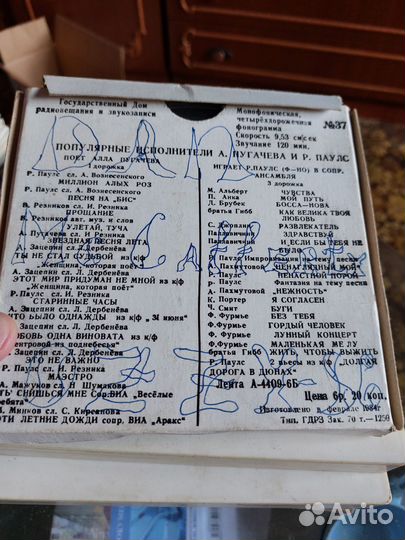 Государственный Дом
радиовещания и звукозаписи
Монофоническая,
четырёхдорожечная
фонограмма
Скорость 9,53 см/сек
Звучание 120 мин.
№37
ПОПУЛЯРНЫЕ ИСПОЛНИТЕЛИ А. ПУГАЧЕВА И Р. ПАУЛС
ПОЕТ АЛЛА ПУГАЧЕВА
1 дорожка
Р. Паулс сл. А. Вознесенского
МИЛЛИОН АЛЫХ РОЗ
Р. Паулс сл. А. Вознесенского
ПЕСНЯ НА „БИС"
Р. Паулс сл. И. Резника
ПРОЩАНИЕ
И. Резников авт. муз. и слов
УЛЕТАЙ, ТУЧА
А. Пугачева сл. И. Резника
ЗВЕЗДНАЯ ПЕСНЯ ЛЕТА
А. Зацепин сл. Л. Дербенёва
ТЫ НЕ СТАЛ СУДЬБОЙ из к/ф
„Женщина, которая поёт"
А. Зацепин сл. Л. Дербенёва
ЭТОТ МИР ПРИДУМАН НЕ МНОЙ из к/ф
„Женщина, которая поёт"
Р. Паулс сл. И. Резника
СТАРИННЫЕ ЧАСЫ
А. Зацепин сл. Л. Дербенёва
ЧТО БЫЛО ОДНАЖДЫ из к/ф „31 июня"
Зацепин сл. Л. Дербенёва
ЮБОВЬ ОДНА ВИНОВАТА из к/ф
поднебесья"
Зацепин сл. Л. Дербенёва
ЭТО НЕ ВАЖНО
Р. Паулс сл. И. Резника
МАЭСТРО
А. Мажуков сл. И. Шумакова
СНИШЬСЯ МНЕ Сов.ВИА „Весёлые
ребята"
М. Минков сл. С. Кирсанова
ЭТИ ЛЕТНИЕ ДОЖДИ сопр. ВИА „Аракс"
ИГРАЕТ Р.ПАУЛС (Ф-НО) В СОПР.
АНСАМБЛЯ
3 дорожка
М. Альберт ЧУВСТВА
П. Анка МОЙ ПУТЬ
Д. Брубек БОССА-НОВА
братья Гибб КАК ВЕЛИКА ТВОЯ
ЛЮБОВЬ
С. Джоплин РАЗВЛЕКАТЕЛЬ
Паллавичини ЗДРАВСТВУЙ
Паллавичини И ЕСЛИ БЫ ТЕБЯ
НЕ БЫЛО
Р. Паулс Импровизация на тему песни
А. Пахмутовой „НЕНАГЛЯДНЫЙ МОЙ"
Р. Паулс НЕНАСТНОЙ ПОРОЙ
Р. Паулс Фантазия на тему песни
А. Пахмутовой „НЕЖНОСТЬ"
К. Портер Я СОГЛАСЕН
Ч. Смит БУГИ
Ф. Фурмье БЕЗ ТЕБЯ
Ф.Фурмье ГОРДЫЙ ЧЕЛОВЕК
Ф. Фурмье ЛУННЫЙ КОНЦЕРТ
Ф. Фурмье МАЛЕНЬКАЯ МЕЛУ
братья Гибб ЖИТЬ, ЧТОБЫ ВЫЖИТЬ
Р. Паулс 2 пьесы из к/ф „ДОЛГАЯ
ДОРОГА В ДЮНАХ"
Лента А-4409-6Б
Цена 6р. 20 коп.
Изготовлено в феврале 1984г.
Тип. ГДРЗ Зак. 70 т.—1250
Avito